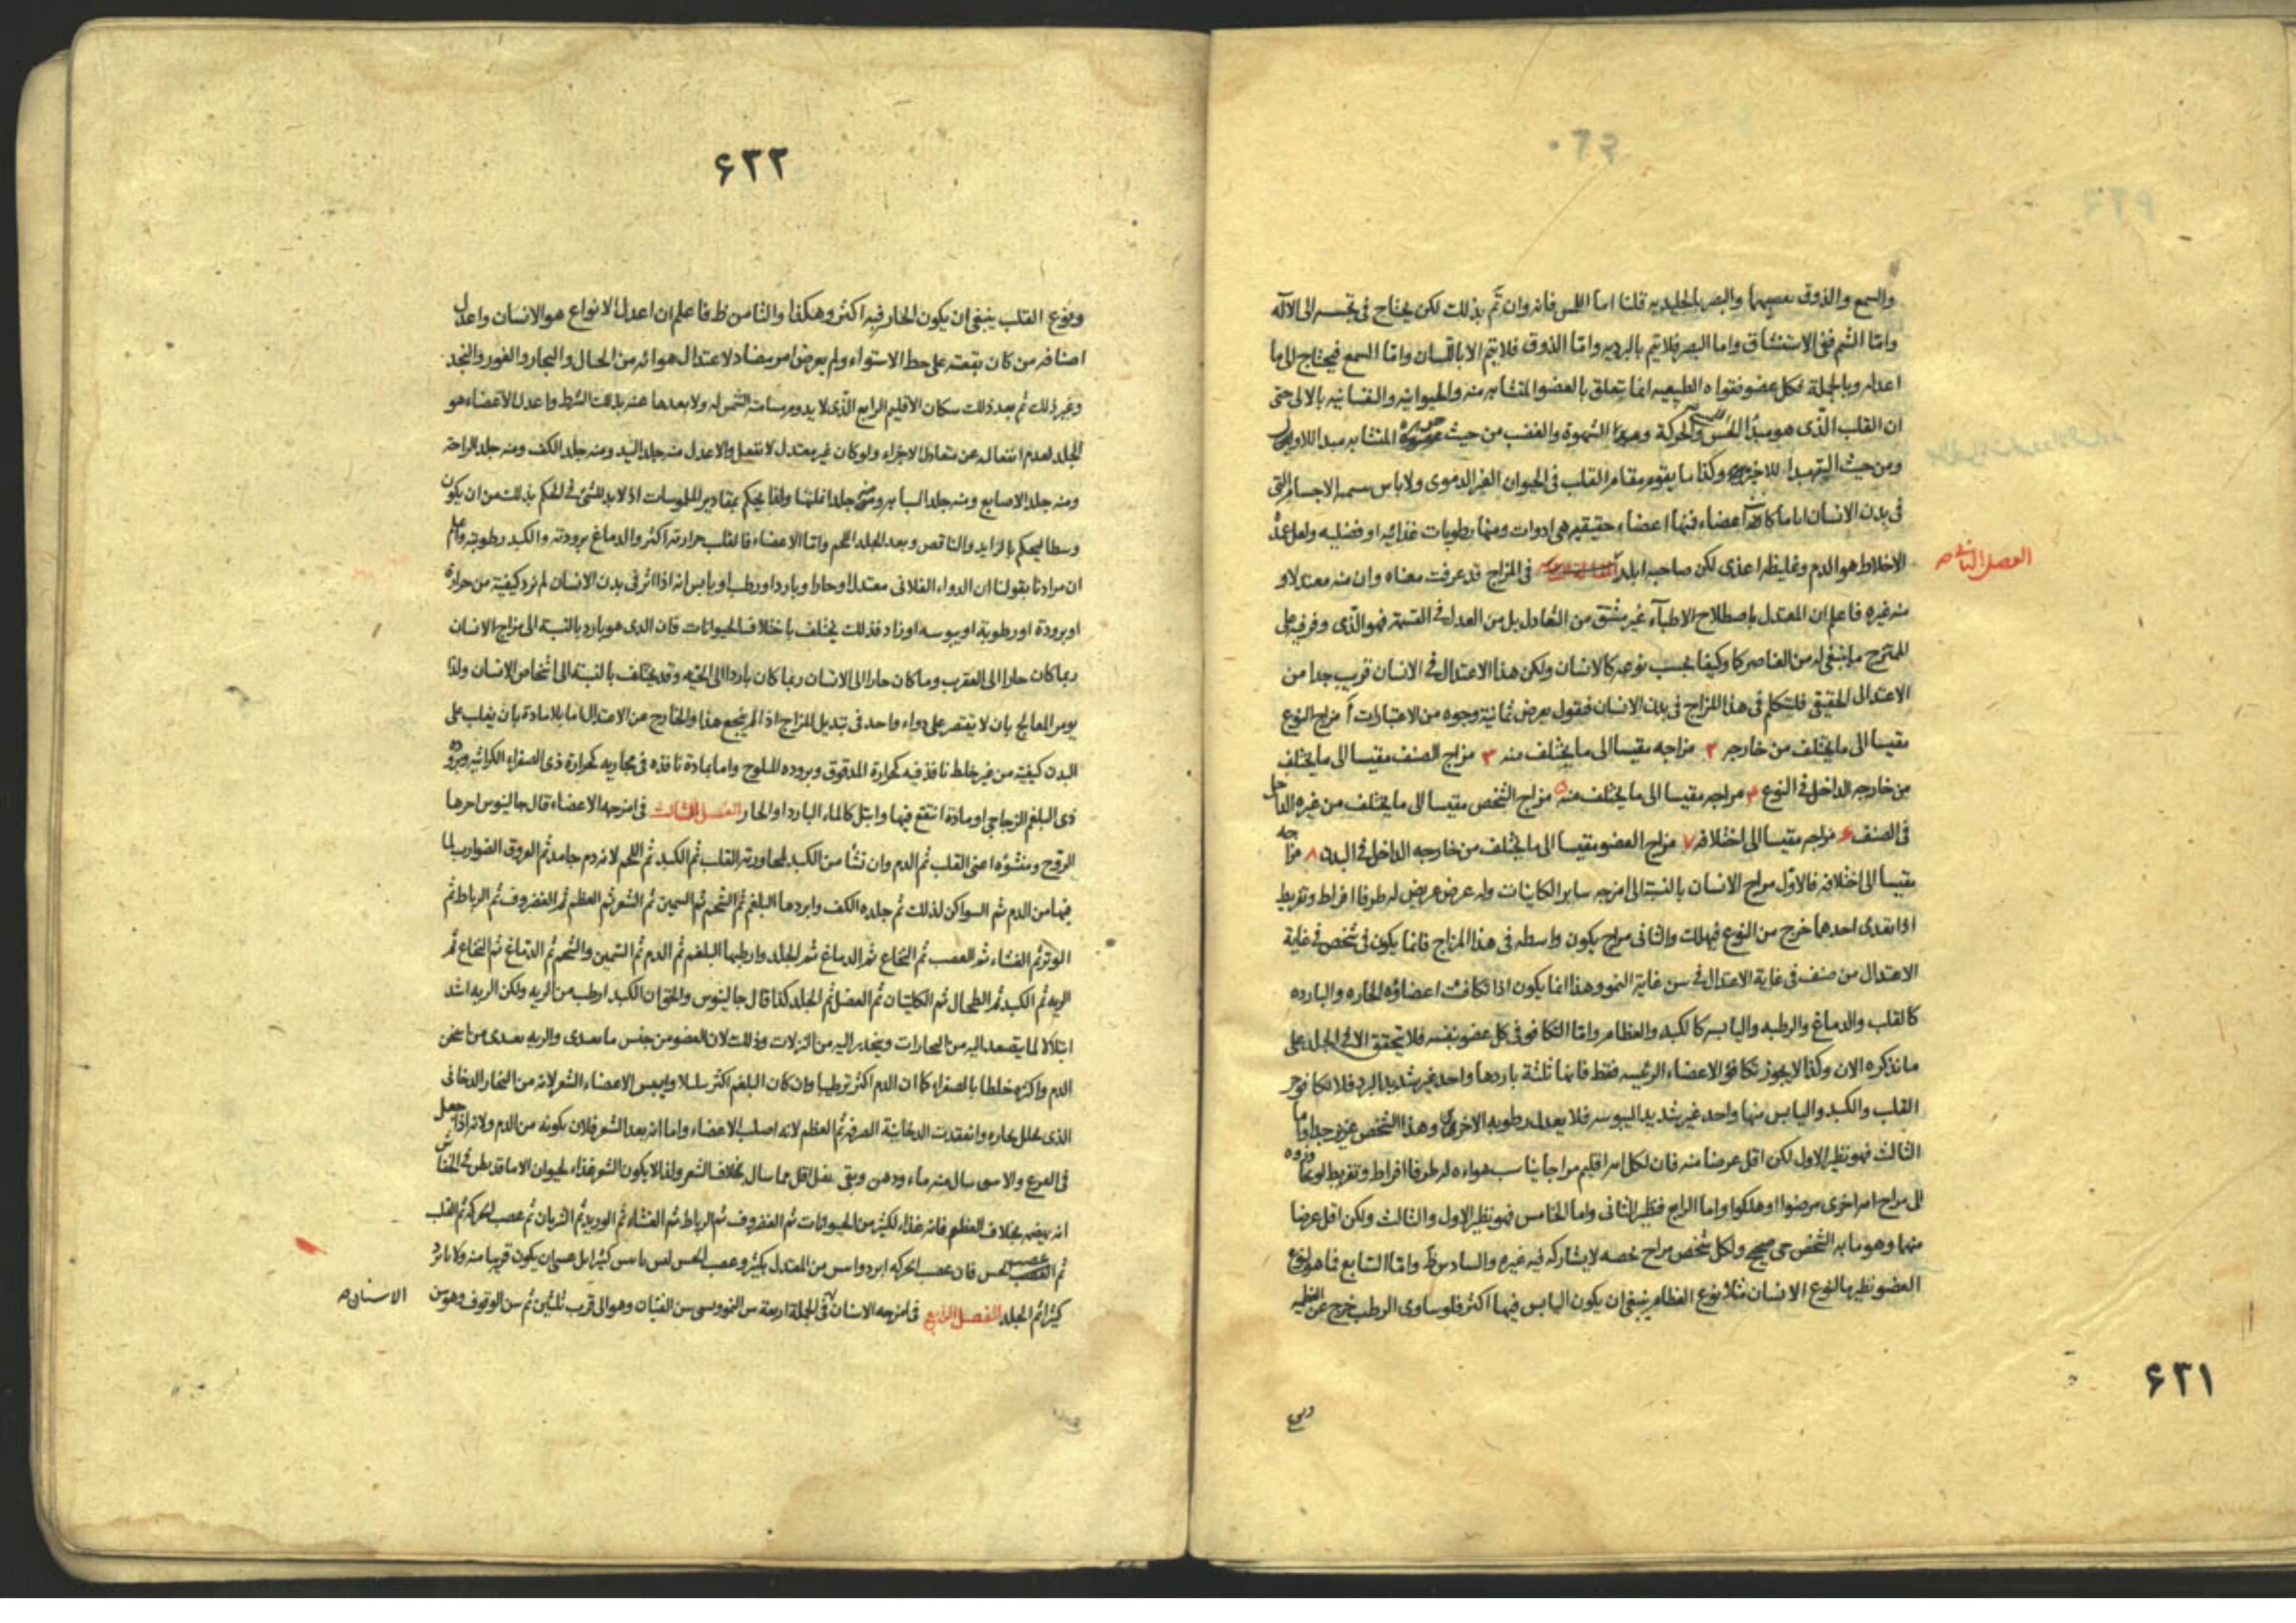 والسمع والذوق بعصبهما والبصر بالجليديه قلنا اما اللمس فانه وان تم بذلك لكن يحتاج فى تجسسه الى الآله
واما الشم ففى الاستنشاق واما البصر فلا يتم بالبرديه واما الذوق فلا يتم الا باللسان واما السمع فيحتاج الى ما
اعداه وبالجملة فكل عضو فقواه الطبيعيه انما تتعلق بالعضو المتشابه منه والحيوانيه والنفسانيه بالالى حتى
ان القلب الذى هو مبدأ الحس والحركة ومبدا الشهوة والغضب من حيث المتشابه مبدا للاولين
ومن حيث للاخير وكذا ما يقوم مقام القلب فى الحيوان الغير الدموى ولا باس الاجسام التى
فى بدن الانسان اياما كانت اعضاء فمنها اعضاء حقيقيه هى ادوات ومنها رطوبات غذائيه او فضليه ولعل
الفصل الثانى
الاخلاط هو الدم وغليظه اعذى لكن صاحبه ابلد فى المزاج قد عرفت معناه وان منه معتدلا و
منه غيره فاعلم ان المعتدل باصطلاح الاطباء غير مشتق من التعادل بل من العدل فى القسمة فهو الذى وفر فيه على
الممتزج ما ينبغى له من العناصر كما وكيفا بحسب نوعه كالانسان ولكن هذا الاعتدال فى الانسان قريب جدا من
الاعتدال الحقيقى فلنتكلم فى هذا المزاج فى بدن الانسان فنقول يعرض ثمانية وجوه من الاعتبارات أ مزاج النوع
مقيسا الى ما يختلف من خارجه ٢ مزاجه مقيسا الى ما يختلف منه ٣ مزاج الصنف مقيسا الى ما يختلف
من خارجه الداخل فى النوع ۴ مزاجه مقيسا الى ما يختلف منه ۵ مزاج الشخص مقيسا الى ما يختلف من غيره الداخل
فى الصنف ۶ مزاجه مقيسا الى اختلافه ٧ مزاج العضو مقيسا الى ما يختلف من خارجه الداخل فى البدن ٨ مزاجه
مقيسا الى اختلافه فالاول مزاج الانسان بالنسبة الى امزجه ساير الكاينات وله عرض عريض له طرفا افراط وتفريط
اذا تعدى احدهما خرج من النوع فيهلك والثانى مزاج يكون واسطه فى هذا المزاج فانما يكون فى شخص فى غاية
الاعتدال من صنف فى غاية الاعتدال فى سن غاية النمو وهذا انما يكون اذا تكافئت اعضاؤه الحاره والبارده
كالقلب والدماغ والرطبه واليابسه كالكبد والعظام واما التكافو فى كل عضو بنفسه فلا يتحقق الا فى الجلد على
ما نذكره الان وكذا لا يجوز تكافؤ الاعضاء الرئيسه فقط فانها ثلثة باردها واحد غير شديد البرد فلا تكافو حر
القلب والكبد واليابس منها واحد غير شديد اليبوسه فلا يعدل رطوبه الاخرى وهذا الشخص عزيز جدا واما
الثالث فهو نظير الاول لكن اقل عرضا منه فان لكل اهل اقليم مزاجا يناسب هواءه له طرفا افراط وتفريط لو
الى مزاج اهل اخرى مرضوا او هلكوا واما الرابع فنظير الثانى واما الخامس فهو نظير الاول والثالث ولكن اقل عرضا
منهما وهو ما به الشخص حى صحيح ولكل شخص مزاج خصه لا يشاركه فيه غيره والسادس ظ واما السابع فما هو لنوع
العضو نظير ما لنوع الانسان مثلا نوع العظام ينبغى ان يكون اليابس فيها اكثر فلو ساوى الرطب خرج عن
۶٢١
ونوع
۶٢٢
ونوع القلب ينبغى ان يكون الحار فيه اكثر وهكذا والثامن ظ فاعلم ان اعدل الانواع هو الانسان واعدل
اصنافه من كان بقعته على خط الاستواء ولم يعرض امر مضاد لاعتدال هوائه من الجبال والبحار والغور والنجد
وغير ذلك ثم بعد ذلك سكان الاقليم الرابع الذى لا يدوم مسامتة الشمس له ولا بعدها عنه بذلك الشرط واعدل الاعضاء هو
الجلد لعدم انفعاله عن متعادل الاجزاء ولو كان غير معتدل لانفعل والاعدل منه جلد اليد ومنه جلد الكف ومنه جلد الراحة
ومنه جلد الاصابع ومنه جلد السبابه ومنه جلد انملتها ولهذا يحكم بمقادير الملموسات اذ لا بد للشئ فى الحكم بذلك من ان يكون
وسطا ليحكم بالزايد والناقص وبعد الجلد اللحم واما الاعضاء فالقلب حرارته اكثر والدماغ برودته والكبد رطوبته واعلم
ان مرادنا بقولنا ان الدواء الفلانى معتدل او حار او بارد او رطب او يابس انه اذا اثر فى بدن الانسان لم نرد كيفية من حرارة
او برودة او رطوبة او يبوسه او زاد فذلك يختلف باختلاف الحيوانات فان الذى هو بارد بالنسبة الى مزاج الانسان
ربما كان حارا الى العقرب وما كان حارا الى الانسان ربما كان باردا الى الحية وقد يختلف بالنسبة الى اشخاص الانسان ولذا
يومر المعالج بان لا يقتصر على دواء واحد فى تبديل المزاج اذا لم ينجع هذا والخارج عن الاعتدال اما بلا مادة بان يغلب على
البدن كيفية من غير خلط نافذ فيه كحرارة المدقوق وبروده المثلوج واما بمادة نافذه فى مجاريه كحرارة ذى الصفراء الكراثيه وبروده
ذى البلغم الزجاجى او مادة انتقع فيها وابتل كالماء البارد او الحار الفصل الثالث فى امزجه الاعضاء قال جالينوس احرها
الروح ومنشؤه اعنى القلب ثم الدم وان نشأ من الكبد لمجاورته القلب ثم الكبد ثم اللحم لانه دم جامد ثم العروق الضوارب لما
فيها من الدم ثم السواكن لذلك ثم جلده الكف وابردها البلغم ثم الشحم ثم السمين ثم الشعر ثم العظم ثم الغضروف ثم الرباط ثم
الوتر ثم الغشاء ثم العصب ثم النخاع ثم الدماغ ثم الجلد وارطبها البلغم ثم الدم ثم السمين والشحم ثم الدماغ ثم النخاع ثم
الريه ثم الكبد ثم الطحال ثم الكليتان ثم العضل ثم الجلد كذا قال جالينوس والحق ان الكبد ارطب من الريه ولكن الريه اشد
ابتلالا لما يتصعد اليه من البخارات وينحدر اليه من النزلات وذلك لان العضو من جنس ما يغتذى والريه تغتذى من اسخن
الدم واكثره خلطا بالصفراء كما ان الدم اكثر ترطيبا وان كان البلغم اكثر بللا وايبس الاعضاء الشعر لانه من البخار الدخانى
الذى تحلل بخاره وانعقدت الدخانية الصرفه ثم العظم لانه اصلب الاعضاء واما انه بعد الشعر فلان تكونه من الدم ولانه اذا جعل
فى القرع والانبيق سال منه ماء ودهن وبقى ثفل اقل مما سال بخلاف الشعر ولذا لا يكون الشعر غذاء لحيوان الا ما قد يظن فى الخفاش
انه يهضمه بخلاف العظم فانه غذاء لكثير من الحيوانات ثم الغضروف ثم الرباط ثم الغشاء ثم الوريد ثم الشريان ثم عصب الحركة ثم القلب
ثم عصب الحس فان عصب الحركه ابرد وايبس من المعتدل بكثير وعصب الحس ليس بايبس كثيرا بل عسى ان يكون قريبا منه ولا بابرد
كثيرا ثم الجلد الفصل الرابع فى امزجه الاسنان فى الجملة اربعة سن النمو ويسمى سن الفتيان وهو الى قرب ثلثين ثم سن الوقوف وهو سن
الاسنان